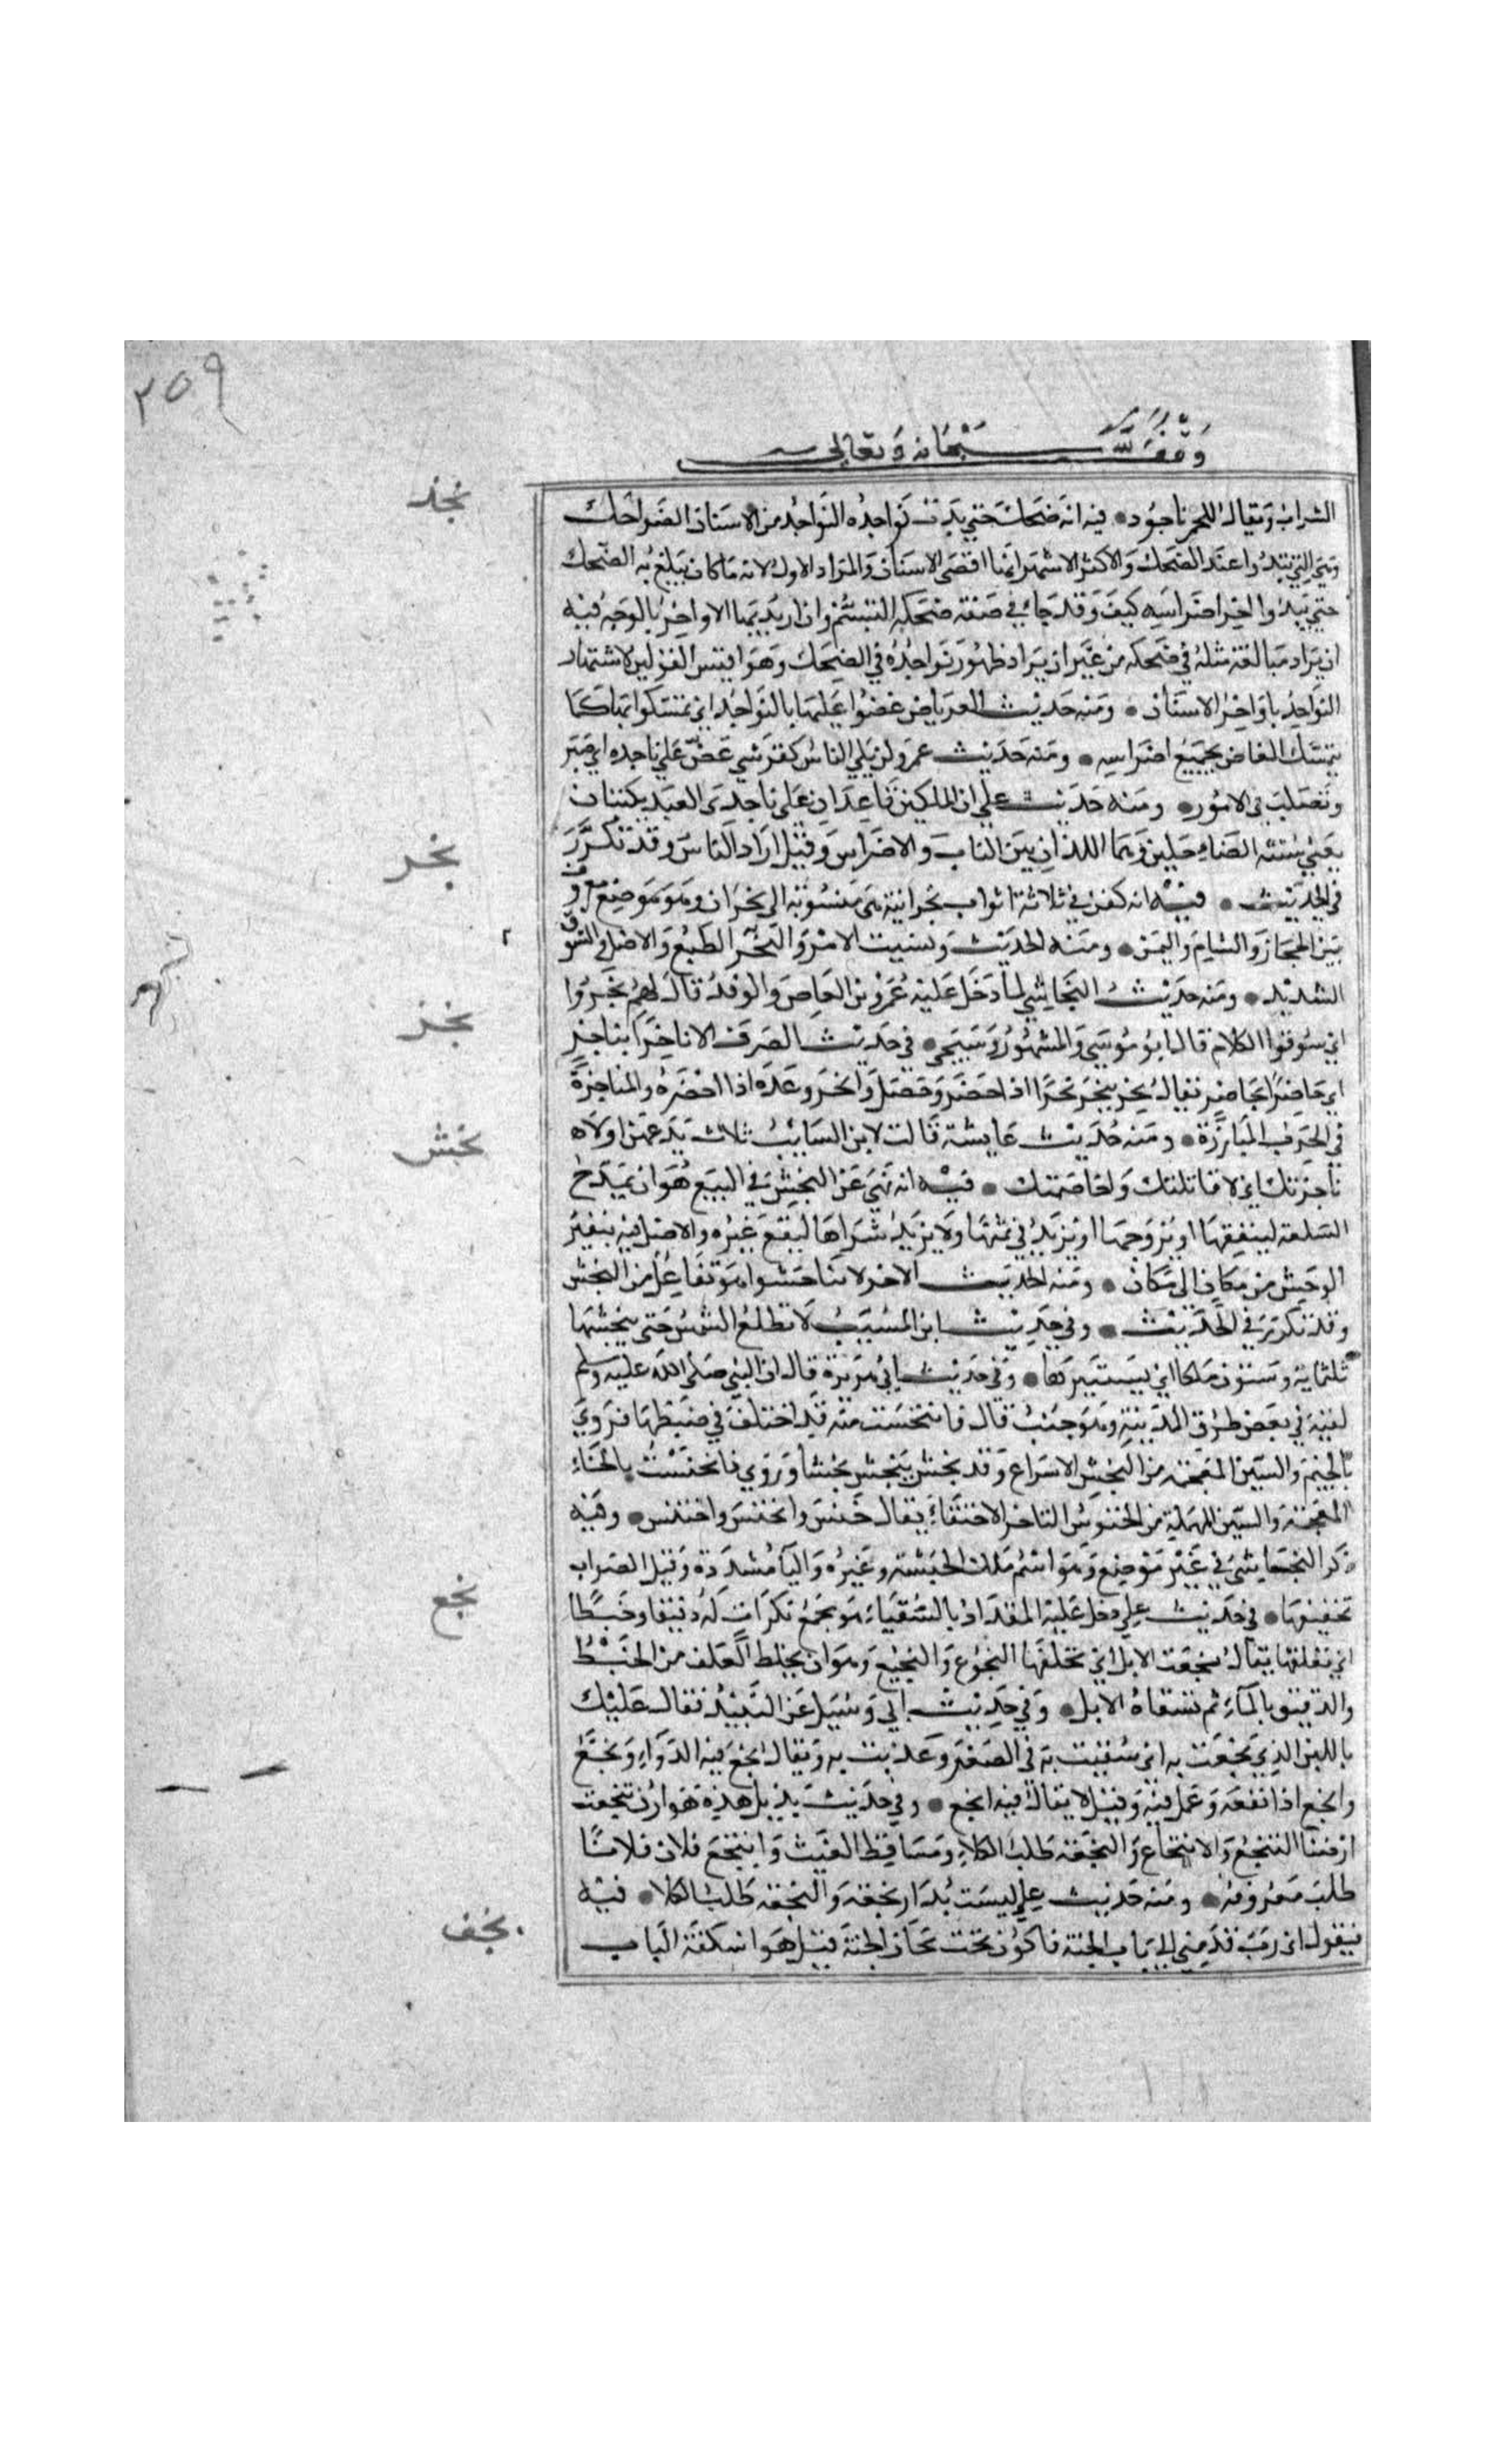 ٢٥٩
وقف لله سبحانه وتعالى
نجذ
الشراب ويقال للخمر ناجود • فيه انه ضحك حتي بدت نواجذه النواجذ من الاسنان الضواحك
وهي التي تبدوا عند الضحك والاكثر الاشهر انها اقصى الاسنان والمراد الاول لانه ما كان يبلغ به الضحك
حتي يبدوا اخر اضراسه كيف وقد جاء في صفة ضحكه التبسم وان اريد بها الاواخر بالوجه فيه
ان يراد مبالغة مثله في ضحكه من غير ان يراد ظهور نواجذه في الضحك وهو اقيس القولين لاشتهار
النواجذ باواخر الاسنان • ومنه حديث العرباض عضوا عليها بالنواجذ اي تمسكوا بها كما
يتمسك العاض بجميع اضراسه • ومنه حديث عمر ولن يلي الناس كقرشي عض علي ناجذه اي صبر
وتصلب في الامور • ومنه حديث علي ان الملكين قاعدان علي ناجذى العبد يكتبان
يعني سنيه الضاحكين وهما اللذان بين الناب والاضراس وقيل اراد الناس وقد تكرر
نجر
في الحديث • فيه انه كفن في ثلاثة اثواب نجرانية هي منسوبة الى نجران وهو موضع معروف
بين الحجاز والشام واليمن • ومنه الحديث ونسيت الامر والنجر الطبع والاصل والسوق
الشديد • ومنه حديث النجاشي لما دخل عليه عمرو بن العاص والوفد قال لهم نجروا
نجز
اي سوقوا الكلام قال ابو موسي والمشهور وسيجي • في حديث الصرف الا ناجزا بناجز
اي حاضرا بحاضر يقال نجز ينجز نجزا اذا حضر وحصل وانجز وعده اذا احضره والمناجزة
نجش
في الحرب المبارزة • ومنه حديث عايشة قالت لابن السايب ثلاث تدعهن اولاه
ناجزنك اي لاقاتلنك ولخاصمنك • فيه انه نهي عن النجش في البيع هو ان يمدح
السلعة لينفقها او يروجها او يزيد في ثمنها ولا يريد شراها ليقع غيره والاصل فيه تنفير
الوحش من مكان الى مكان • ومنه الحديث الاخر لا تناجشوا هو تفاعل من النجش
وقد تكرر في الحديث • وفي حديث ابن المسيب لا تطلع الشمس حتى ينجشها
ثلثماية وستون ملكا اي يستثيرها • وفي حديث ابي هريرة قال ان النبي صلى الله عليه وسلم
لقيه في بعض طرق المدينة وهو جنب قال فانتجشت منه قد اختلف في ضبطها فروي
بالجيم والشين المعجمة من النجش الاسراع وقد نجش ينجش نجشا وروي فانخنست بالخاء
المعجمة والسين المهملة من الخنوس التاخر الاختفاء يقال خنس وانخنس واختنس • وفيه
ذكر النجاشي في غير موضع وهو اسم ملك الحبشة وغيره والياء مشددة وقيل الصواب
نجع
تخفيفها • في حديث علي دخل عليه المقداد بالسقياء وهو ينجع بكرات له دقيقا وخبطا
اي يعلفها يقال نجعت الابل اي علفتها النجوع والنجيع وهو ان يخلط العلف من الخبط
والدقيق بالماء ثم تسقاه الابل • وفي حديث ابي وسيل عن النبيذ فقال عليك
باللبن الذي نجعت به اي سقيت به في الصغر وغذيت به ويقال نجع فيه الدواء ونجع
وانجع اذا نفعه وعمل فيه وقيل لا يقال فيه انجع • وفي حديث بديل هذه هوازن تنجعت
ارضنا التنجع والانتجاع والنجعة طلب الكلاء ومساقط الغيث وانتجع فلان فلانا
طلب معروفه • ومنه حديث علي ليست بدار نجعة والنجعة طلب الكلا • فيه
نجف
فيقول اي رب قدمني الى باب الجنة فاكون تحت نجاف الجنة قيل هو اسكفة الباب